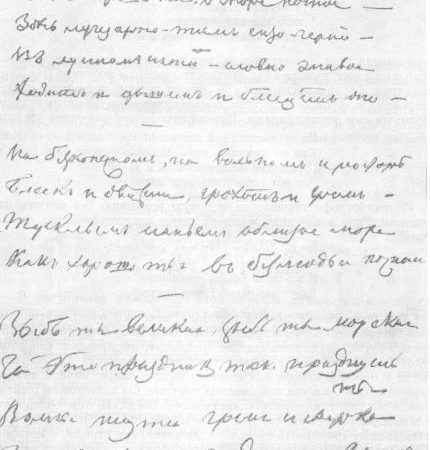 море ночное —
Здѣсь лучезарно — тамъ сизо-черно —
Въ лунномъ сіяніи — словно живое
Ходитъ и дышитъ и блещетъ оно —
—
На безконечномъ, на вольномъ просторѣ
Блескъ и движенье, грохотъ и громъ —
Тусклымъ сіяньемъ облитое море
Какъ хорошо ты въ безлюдьи ночномъ
—
Зыбь ты великая, зыбь ты морская
Чей это праздникъ такъ празднуешь
ты
Волны несутся гремя и сверкая